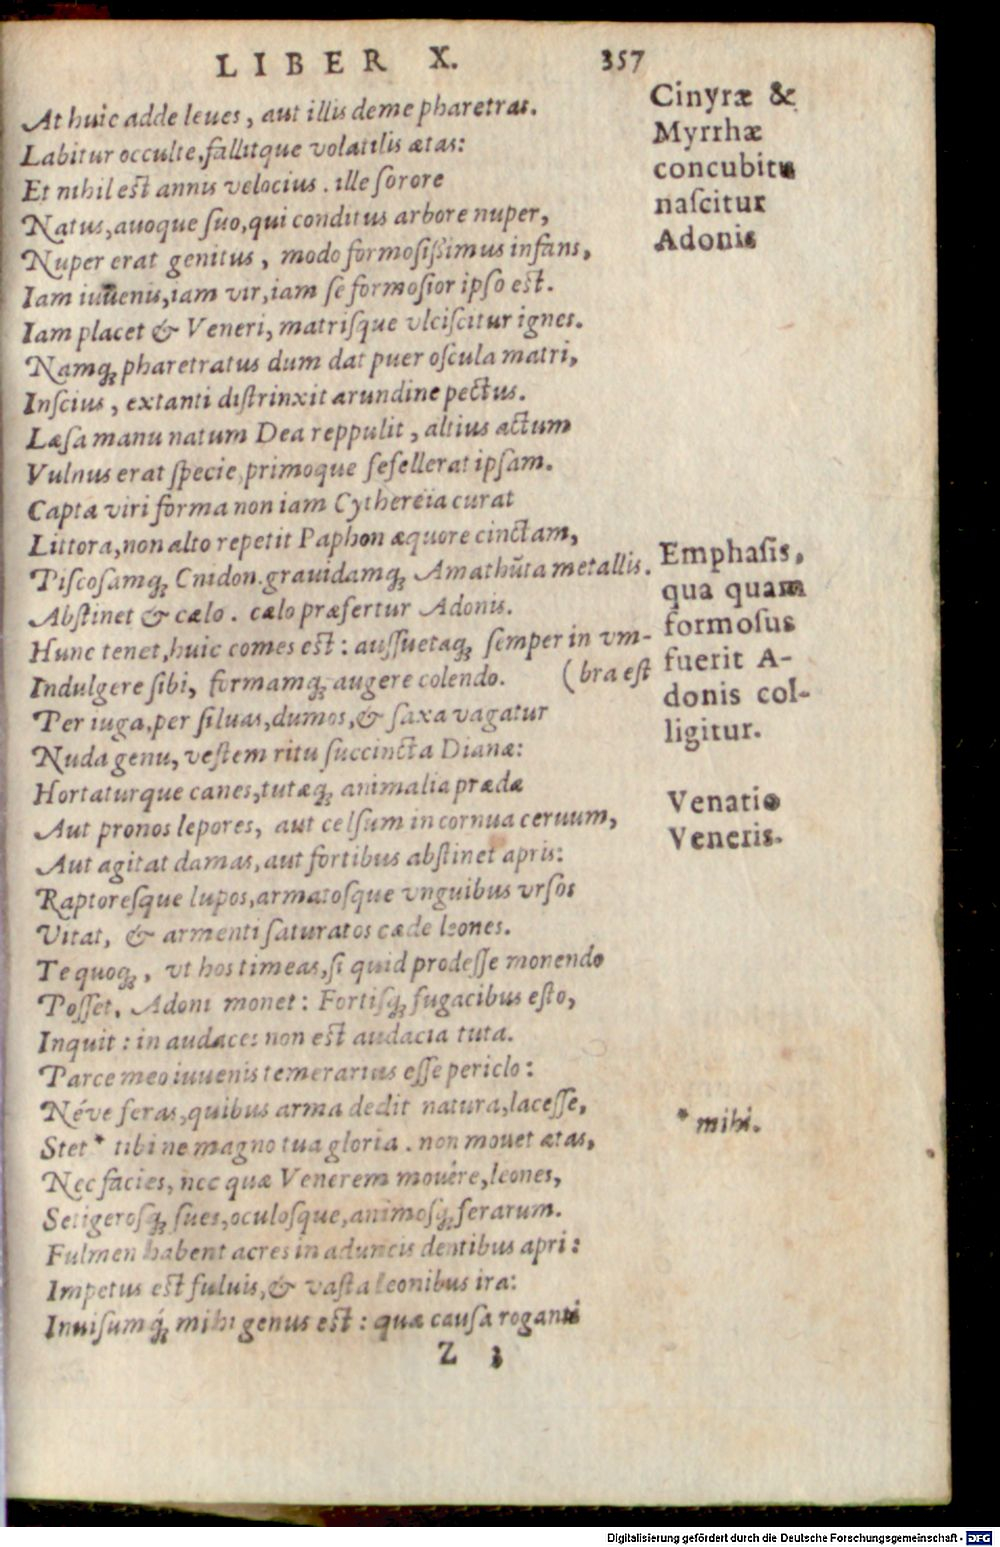 LIBER X. 357
At huic adde leues, aut illis deme pharetras.
Labitur occulte, fallitque volatilis ætas:
Et nihil est annis velocius. ille sorore
Natus, auoque suo, qui conditus arbore nuper,
Nuper erat genitus, modo formosißimus infans,
Iam iuuenis, iam vir, iam se formosior ipso est.
Iam placet & Veneri, matrisque vlciscitur ignes.
Namq; pharetratus dum dat puer oscula matri,
Inscius, extanti distrinxit arundine pectus.
Læsa manu natum Dea reppulit, altius actum
Vulnus erat specie, primoque fefellerat ipsam.
Capta viri forma non iam Cythereïa curat
Littora, non alto repetit Paphon æquore cinctam,
Piscosamq; Cnidon. grauidamq; Amathūta metallis.
Abstinet & cælo. cælo præfertur Adonis.
Hunc tenet, huic comes est: assuetaq; semper in vm-
(bra est
Indulgere sibi, formamq; augere colendo.
Per iuga, per siluas, dumos, & saxa vagatur
Nuda genu, vestem ritu succincta Dianæ:
Hortaturque canes, tutæq; animalia prædæ
Aut pronos lepores, aut celsum in cornua ceruum,
Aut agitat damas, aut fortibus abstinet apris:
Raptoresque lupos, armatosque vnguibus vrsos
Vitat, & armenti saturatos cæde leones.
Te quoq;, vt hos timeas, si quid prodesse monendo
Posset, Adoni monet: Fortisq; fugacibus esto,
Inquit: in audaces non est audacia tuta.
Parce meo iuuenis temerarius esse periclo:
Néve feras, quibus arma dedit natura, lacesse,
Stet* tibi ne magno tua gloria. non mouet ætas,
Nec facies, nec quæ Venerem mouêre, leones,
Setigerosq; sues, oculosque, animosq; ferarum.
Fulmen habent acres in aduncis dentibus apri:
Impetus est fuluis, & vasta leonibus ira:
Inuisumq́; mihi genus est: quæ causa roganti
Z 3
Cinyræ &
Myrrhæ
concubitu
nascitur
Adonis
Emphasis,
qua quam
formosus
fuerit A-
donis col-
ligitur.
Venatio
Veneris.
* mihi.
Digitalisierung gefördert durch die Deutsche Forschungsgemeinschaft - DFG